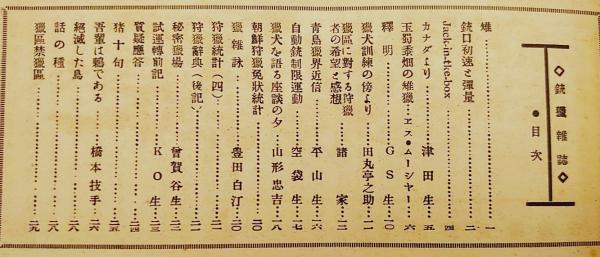 ◇銃獵雜誌◇
●目次
雉……一
銃口初速と彈量……二
Jack-in-the-box……四
カナダより……津田生…五
玉蜀黍畑の雉獵…エス・ムーシヤー…六
釋明……GS生…一〇
獵犬訓練の傍より……田丸亭之助…一一
獵區に對する狩獵者の希望と感想……諸家…一三
青島獵界近信……平山生…一六
自動銃制限運動……空袋生…一七
獵犬を語る座談の夕…山形忠吉…一八
朝鮮狩獵免狀統計……二〇
獵雜詠……豊田白汀…二〇
狩獵統計（四）……二一
狩獵辭典（後記）……二二
秘密獵場……曾賀谷生…二三
試運轉前記……KO生…二三
質疑應答……二四
猪十句……二五
吾輩は鶉である……橋本技手…二六
絕滅した鳥……二八
話の種……二八
獵區禁獵區……二九